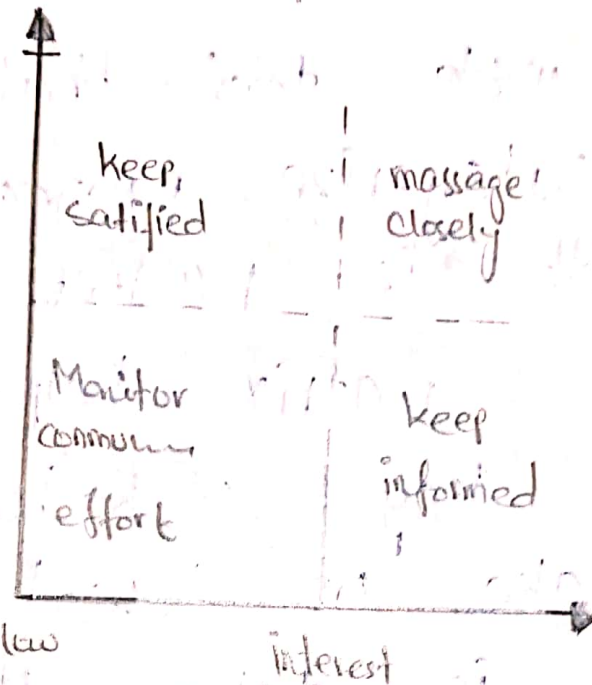 keep,
satified
massage
closely
Monitor
effort
keep
informed
law
interest